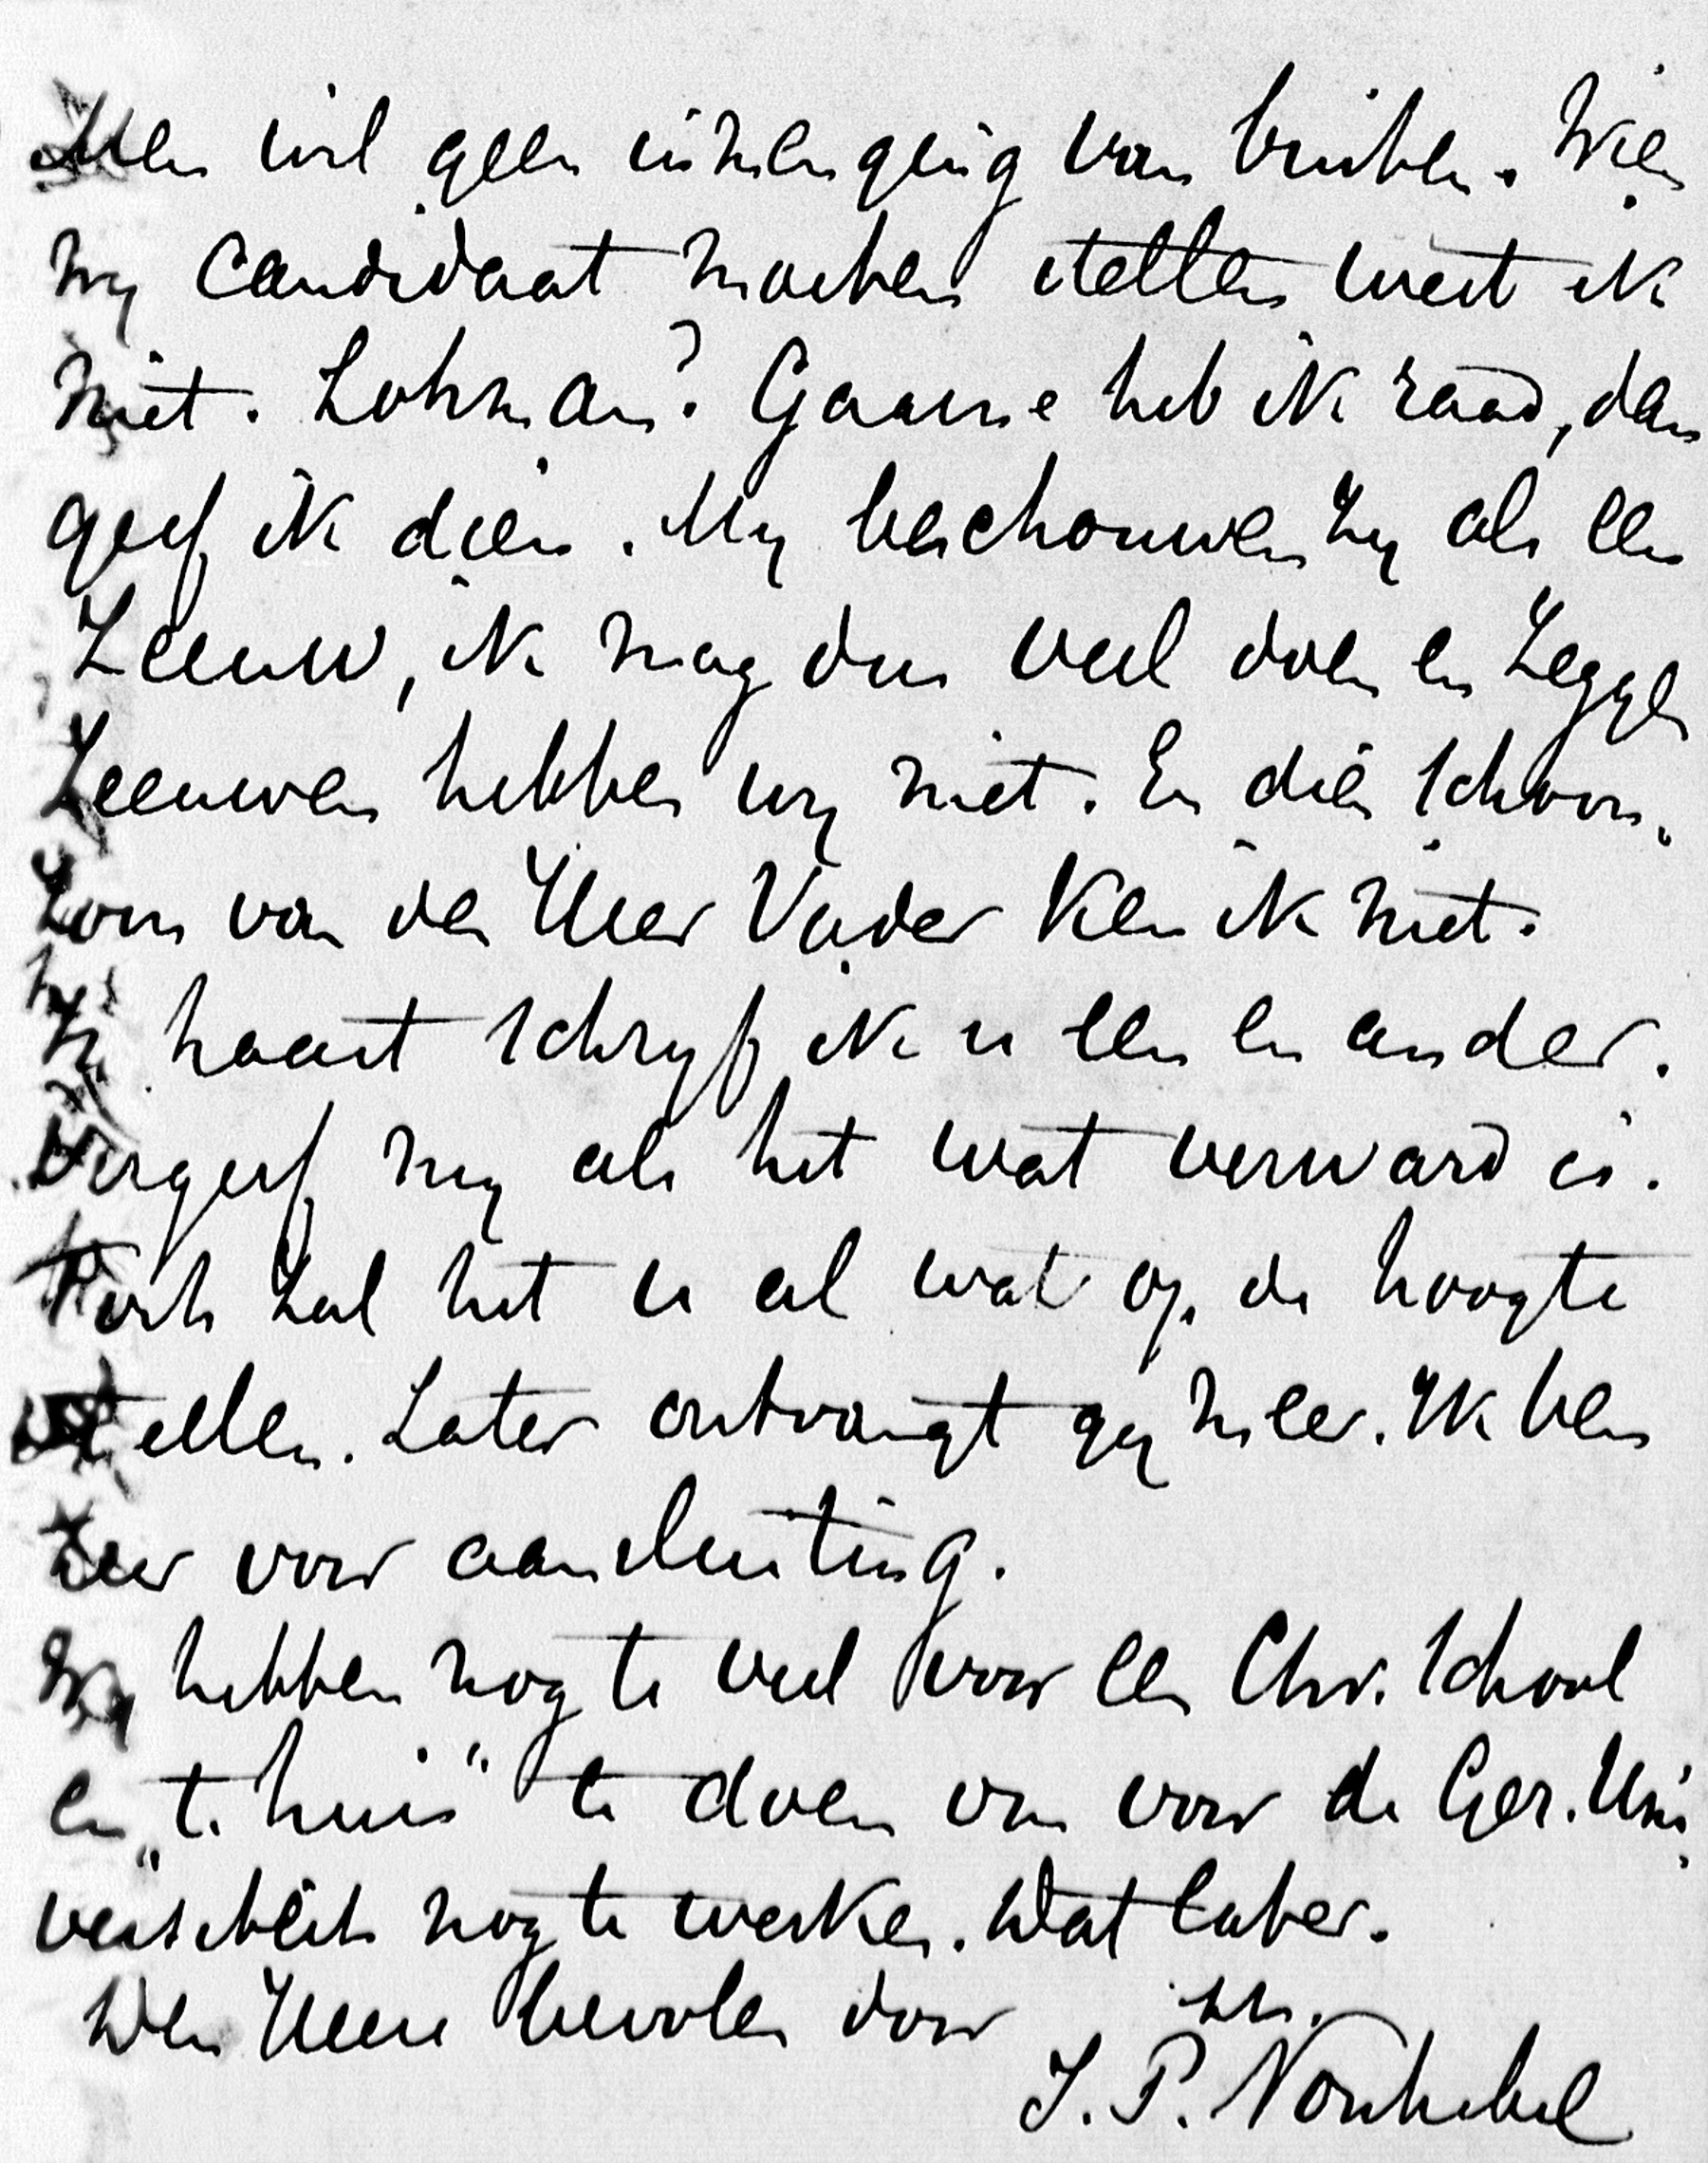 Men wil geen inmenging van buiten. Wien
wy candidaat moeten stellen weet ik
niet. Lohman? Gaarne heb ik raad, dan
geef ik dien. My beschouwen zy als een
Zeeuw, ik mag dus veel doen en zeggen
Zeeuwen hebben wy niet. En dien schoon„
zoon van den Heer Vader ken ik niet.
In haast schryf ik u een en ander.
Vergeef my als het wat verward is.
Toch zal het u al wat op de hoogte
stellen. Later ontvangt gy meer. Ik ben
zeer voor aansluiting.
Wy hebben nog te veel voor een Chr. School
en „t. huis" te doen om voor de Ger. Uni„
versiteit nog te werken. Wat later.
Den Heere bevolen door
J. P. Nonhebel